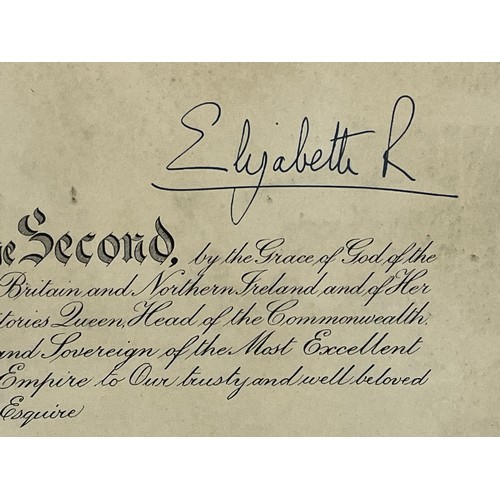 Elizabeth R
Second, by the Grace of God of the
Britain and Northern Ireland and of Her
Queen, Head of the Commonwealth,
and Sovereign of the Most Excellent
Empire to Our trusty and well beloved
Esquire